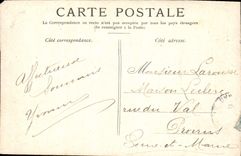 CARTE POSTALE
La Correspondance au recto n'est pas acceptée par tous les pays étrangers
(Se renseigner à la Poste)
Côté correspondance.
Côté adresse.
Affectueux
Yvonne
Monsieur Larousse
Maison Leclerc
rue du Val
Provins
Seine-et-Marne